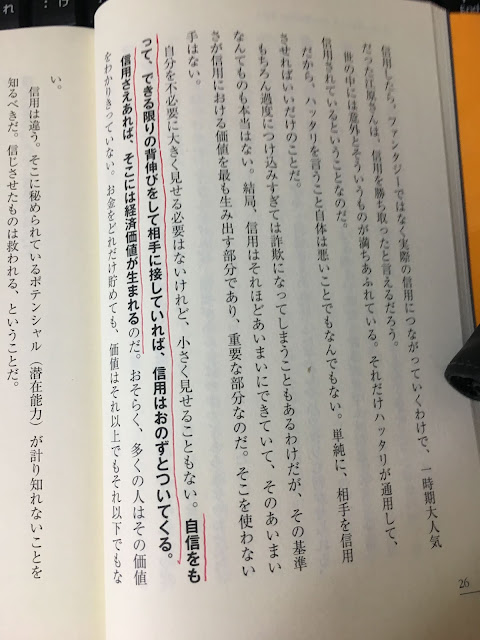 信用したら。ファンタジーではなく実際の信用につながっていくわけで、一時期大人気
だった江原さんは、信用を勝ち取ったと言えるだろう。
世の中には意外とそういうものが満ちあふれている。それだけハッタリが通用して、
信用されているということなのだ。
だから、ハッタリを言うこと自体は悪いことでもなんでもない。単純に、相手を信用
させればいいだけのことだ。
もちろん過度につけ込みすぎては詐欺になってしまうこともあるわけだが、その基準
なんてものも本当はない。結局、信用はそれほどあいまいにできていて、そのあいまい
さが信用における価値を最も生み出す部分であり、重要な部分なのだ。そこを使わない
手はない。
自分を不必要に大きく見せる必要はないけれど、小さく見せることもない。自信をも
って、できる限りの背伸びをして相手に接していれば、信用はおのずとついてくる。
信用さえあれば、そこには経済価値が生まれるのだ。おそらく、多くの人はその価値
をわかりきっていない。お金をどれだけ貯めても、価値はそれ以上でもそれ以下でもな
26
い。
信用は違う。そこに秘められているポテンシャル（潜在能力）が計り知れないことを
知るべきだ。信じさせたものは救われる、ということだ。